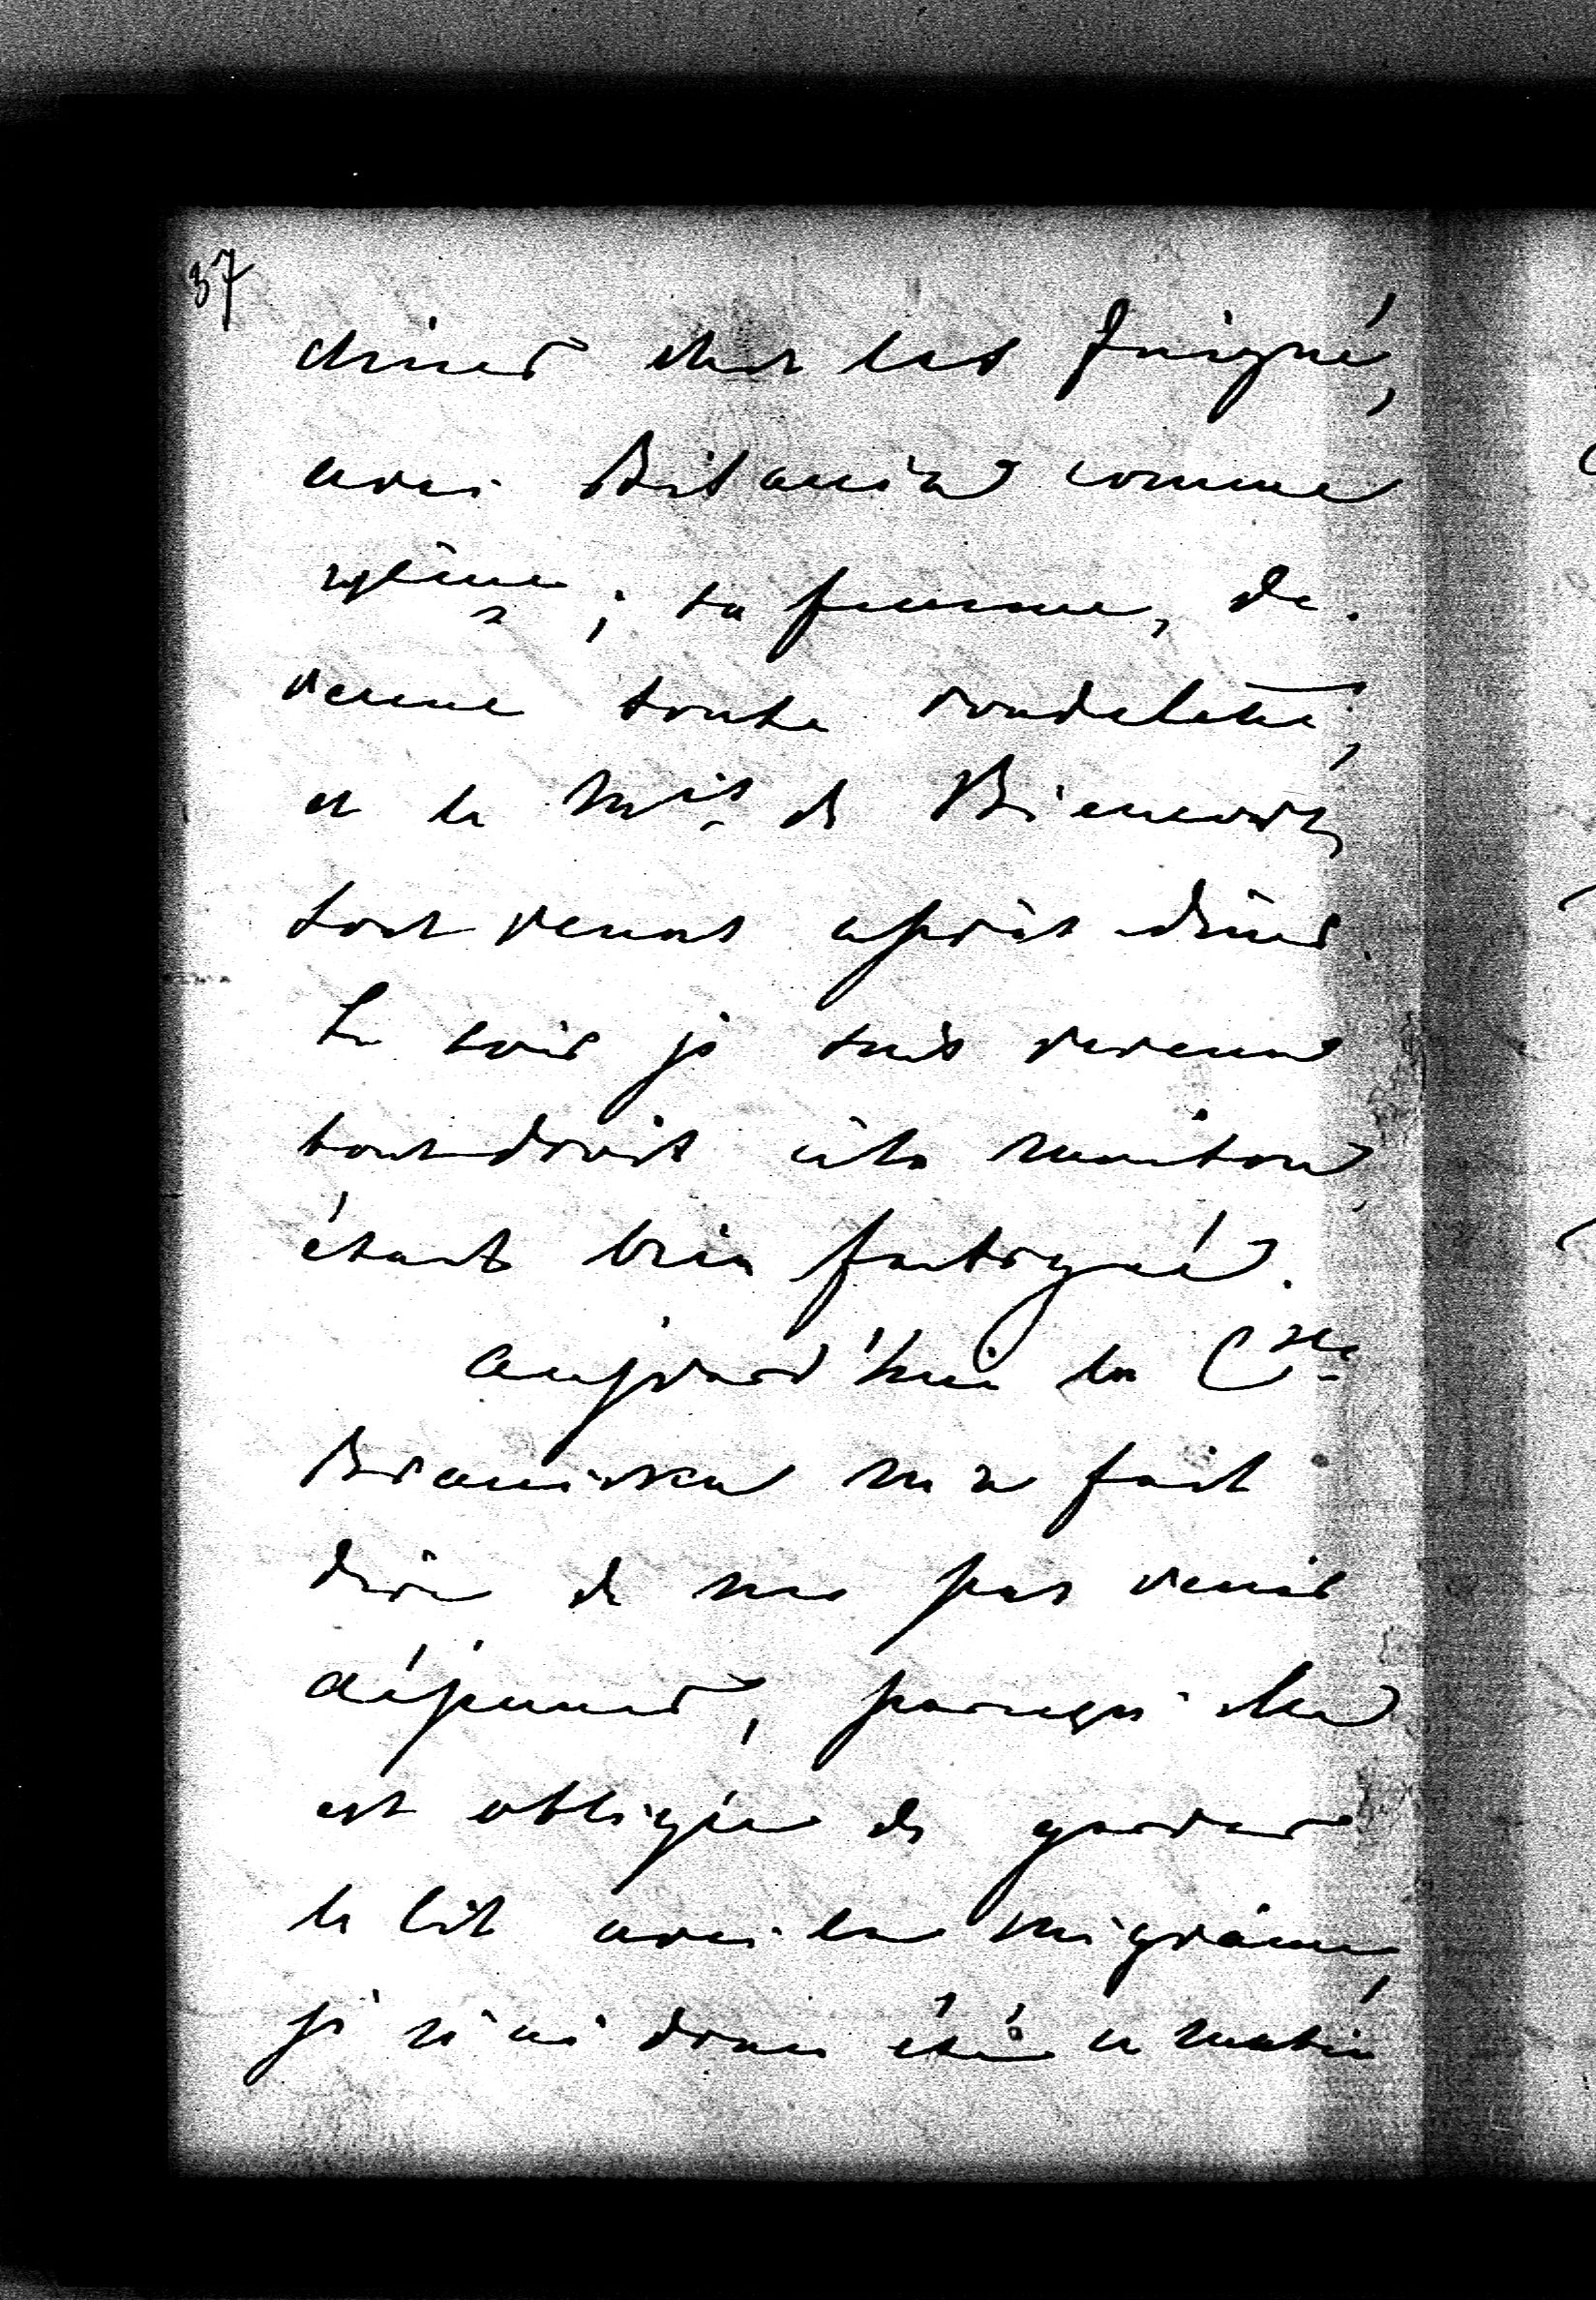 37
diner chez les Juigné,
avec comme
; sa femme, de-
venue toute rondelette,
et le Mis de Biencourt
sont venus après diner.
Le soir je suis revenu
tout droit à la maison
étant bien fatigué.
Aujourd'hui la Csse
Branicka m'a fait
dire de ne pas venir
déjeuner, parcequ'elle
est obligée de garder
le lit avec la migraine,
je n'ai donc été ce matin